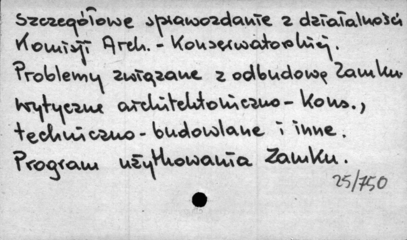 Szczegółowe sprawozdanie z działalności
Komisji Arch. - Konserwatorskiej.
Problemy związane z odbudową Zamku.
wytyczne architektoniczno - Kons.,
techniczno - budowlane i inne.
Program użytkowania Zamku.
25/750